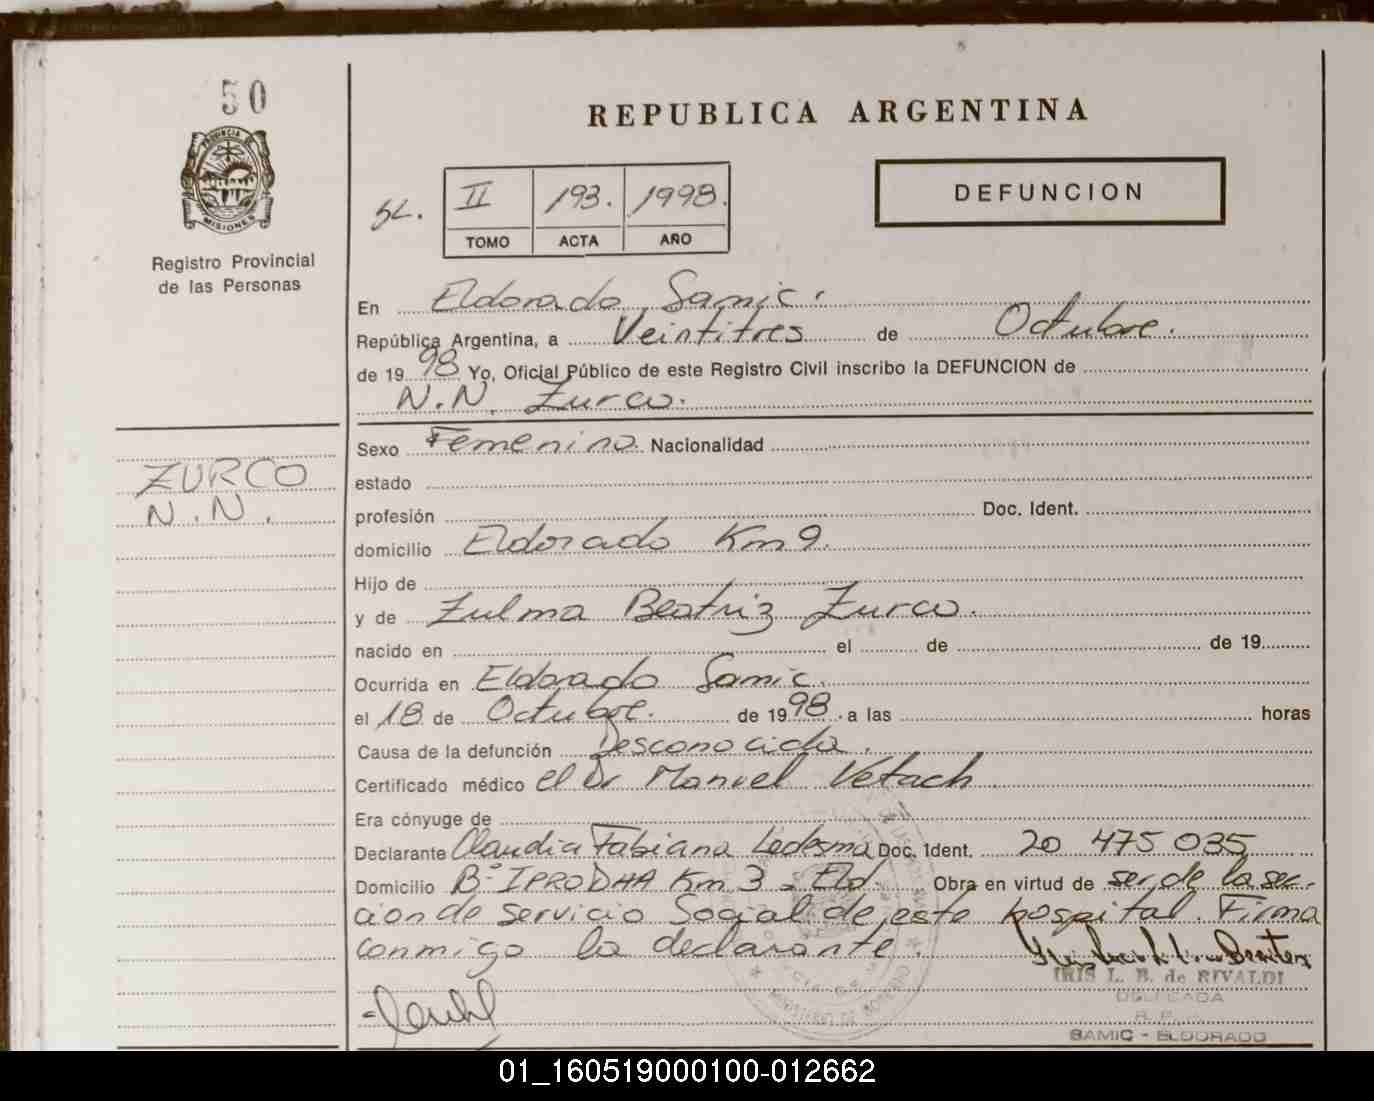 50
PROVINCIA DE
MISIONES
Registro Provincial
de las Personas
ZURCO
N.N.
REPUBLICA ARGENTINA
DEFUNCION
II 193. 1998.
TOMO ACTA AÑO
En Eldorado Samic.
República Argentina, a Veintitres de Octubre.
de 1998 Yo, Oficial Público de este Registro Civil inscribo la DEFUNCION de
N.N. Zurco.
Sexo Femenino. Nacionalidad
estado
profesión Doc. Ident.
domicilio Eldorado Km 9.
Hijo de
y de Zulma Beatriz Zurco.
nacido en el de de 19
Ocurrida en Eldorado Samic.
el 18 de Octubre. de 1998. a las horas
Causa de la defunción Desconocida.
Certificado médico el Dr Manuel Vetach
Era cónyuge de
Declarante Claudia Fabiana Ledesma Doc. Ident. 20 475 035
Domicilio B° IPRODHA Km 3 - Eld. Obra en virtud de ser de la sec-
cion de servicio Social de este hospital. Firma
conmigo la declarante.
IRIS L. B. de RIVALDI
DELEGADA
R. P.
SAMIC - ELDORADO
01_160519000100-012662